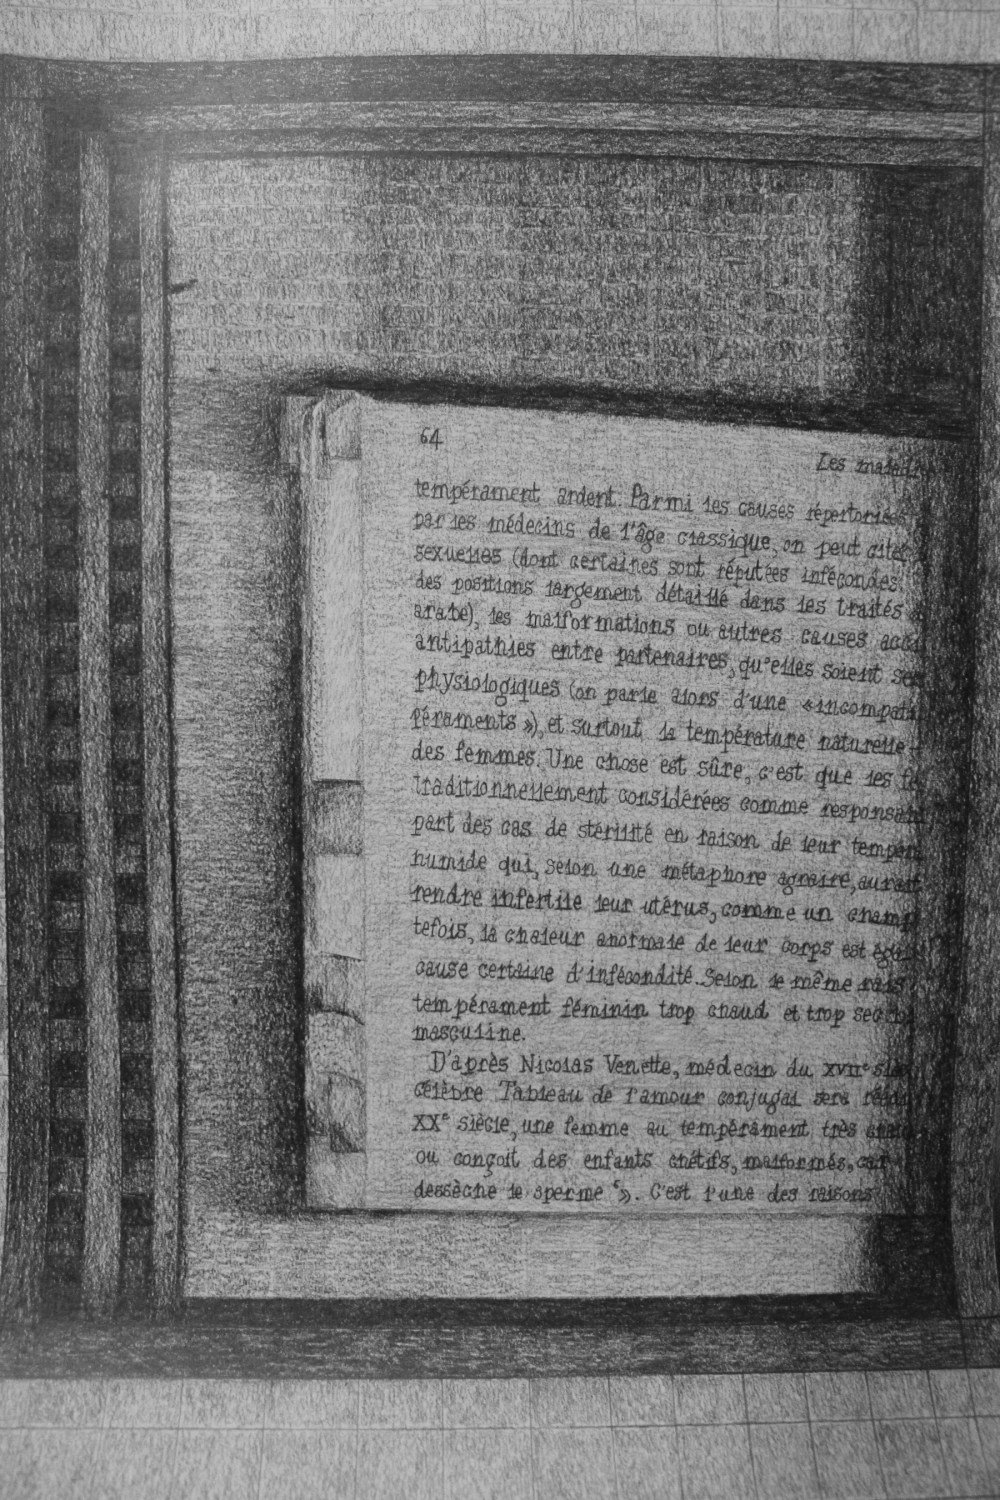 64
Les
tempérament ardent. Parmi les causes répertoriées
par les médecins de l'âge classique, on peut citer
sexuelles (dont certaines sont réputées infécondes,
des positions largement détaillé dans les traités
arabe), les malformations ou autres causes
antipathies entre partenaires, qu'elles soient
physiologiques (on parle alors d'une «incompati
péraments»), et surtout la température naturelle
des femmes. Une chose est sûre, c'est que les
traditionnellement considérées comme responsab
part des cas de stérilité en raison de leur tempéra
humide qui, selon une métaphore agraire, aurait
rendre infertile leur utérus, comme un champ
tefois, la chaleur anormale de leur corps est
cause certaine d'infécondité. Selon le même rais
tempérament féminin trop chaud et trop sec
masculine.
D'après Nicolas Venette, médecin du XVIIe
célèbre Tableau de l'amour conjugal sera
XXe siècle, une femme au tempérament très
ou conçoit des enfants chétifs, malformés, car
dessèche le sperme ». C'est l'une des raisons